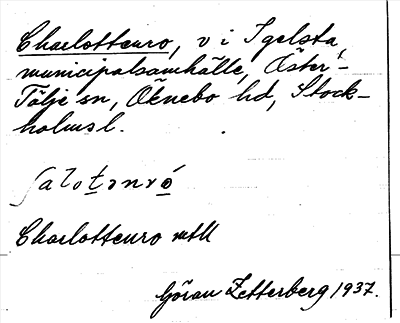 Charlottenro, v i Igelsta
municipalsamhälle, Öster-
Tälje sn, Öknebo hd, Stock-
holms l.
ʃaloṯənró
Charlottenro mtll
Göran Zetterberg 1937.